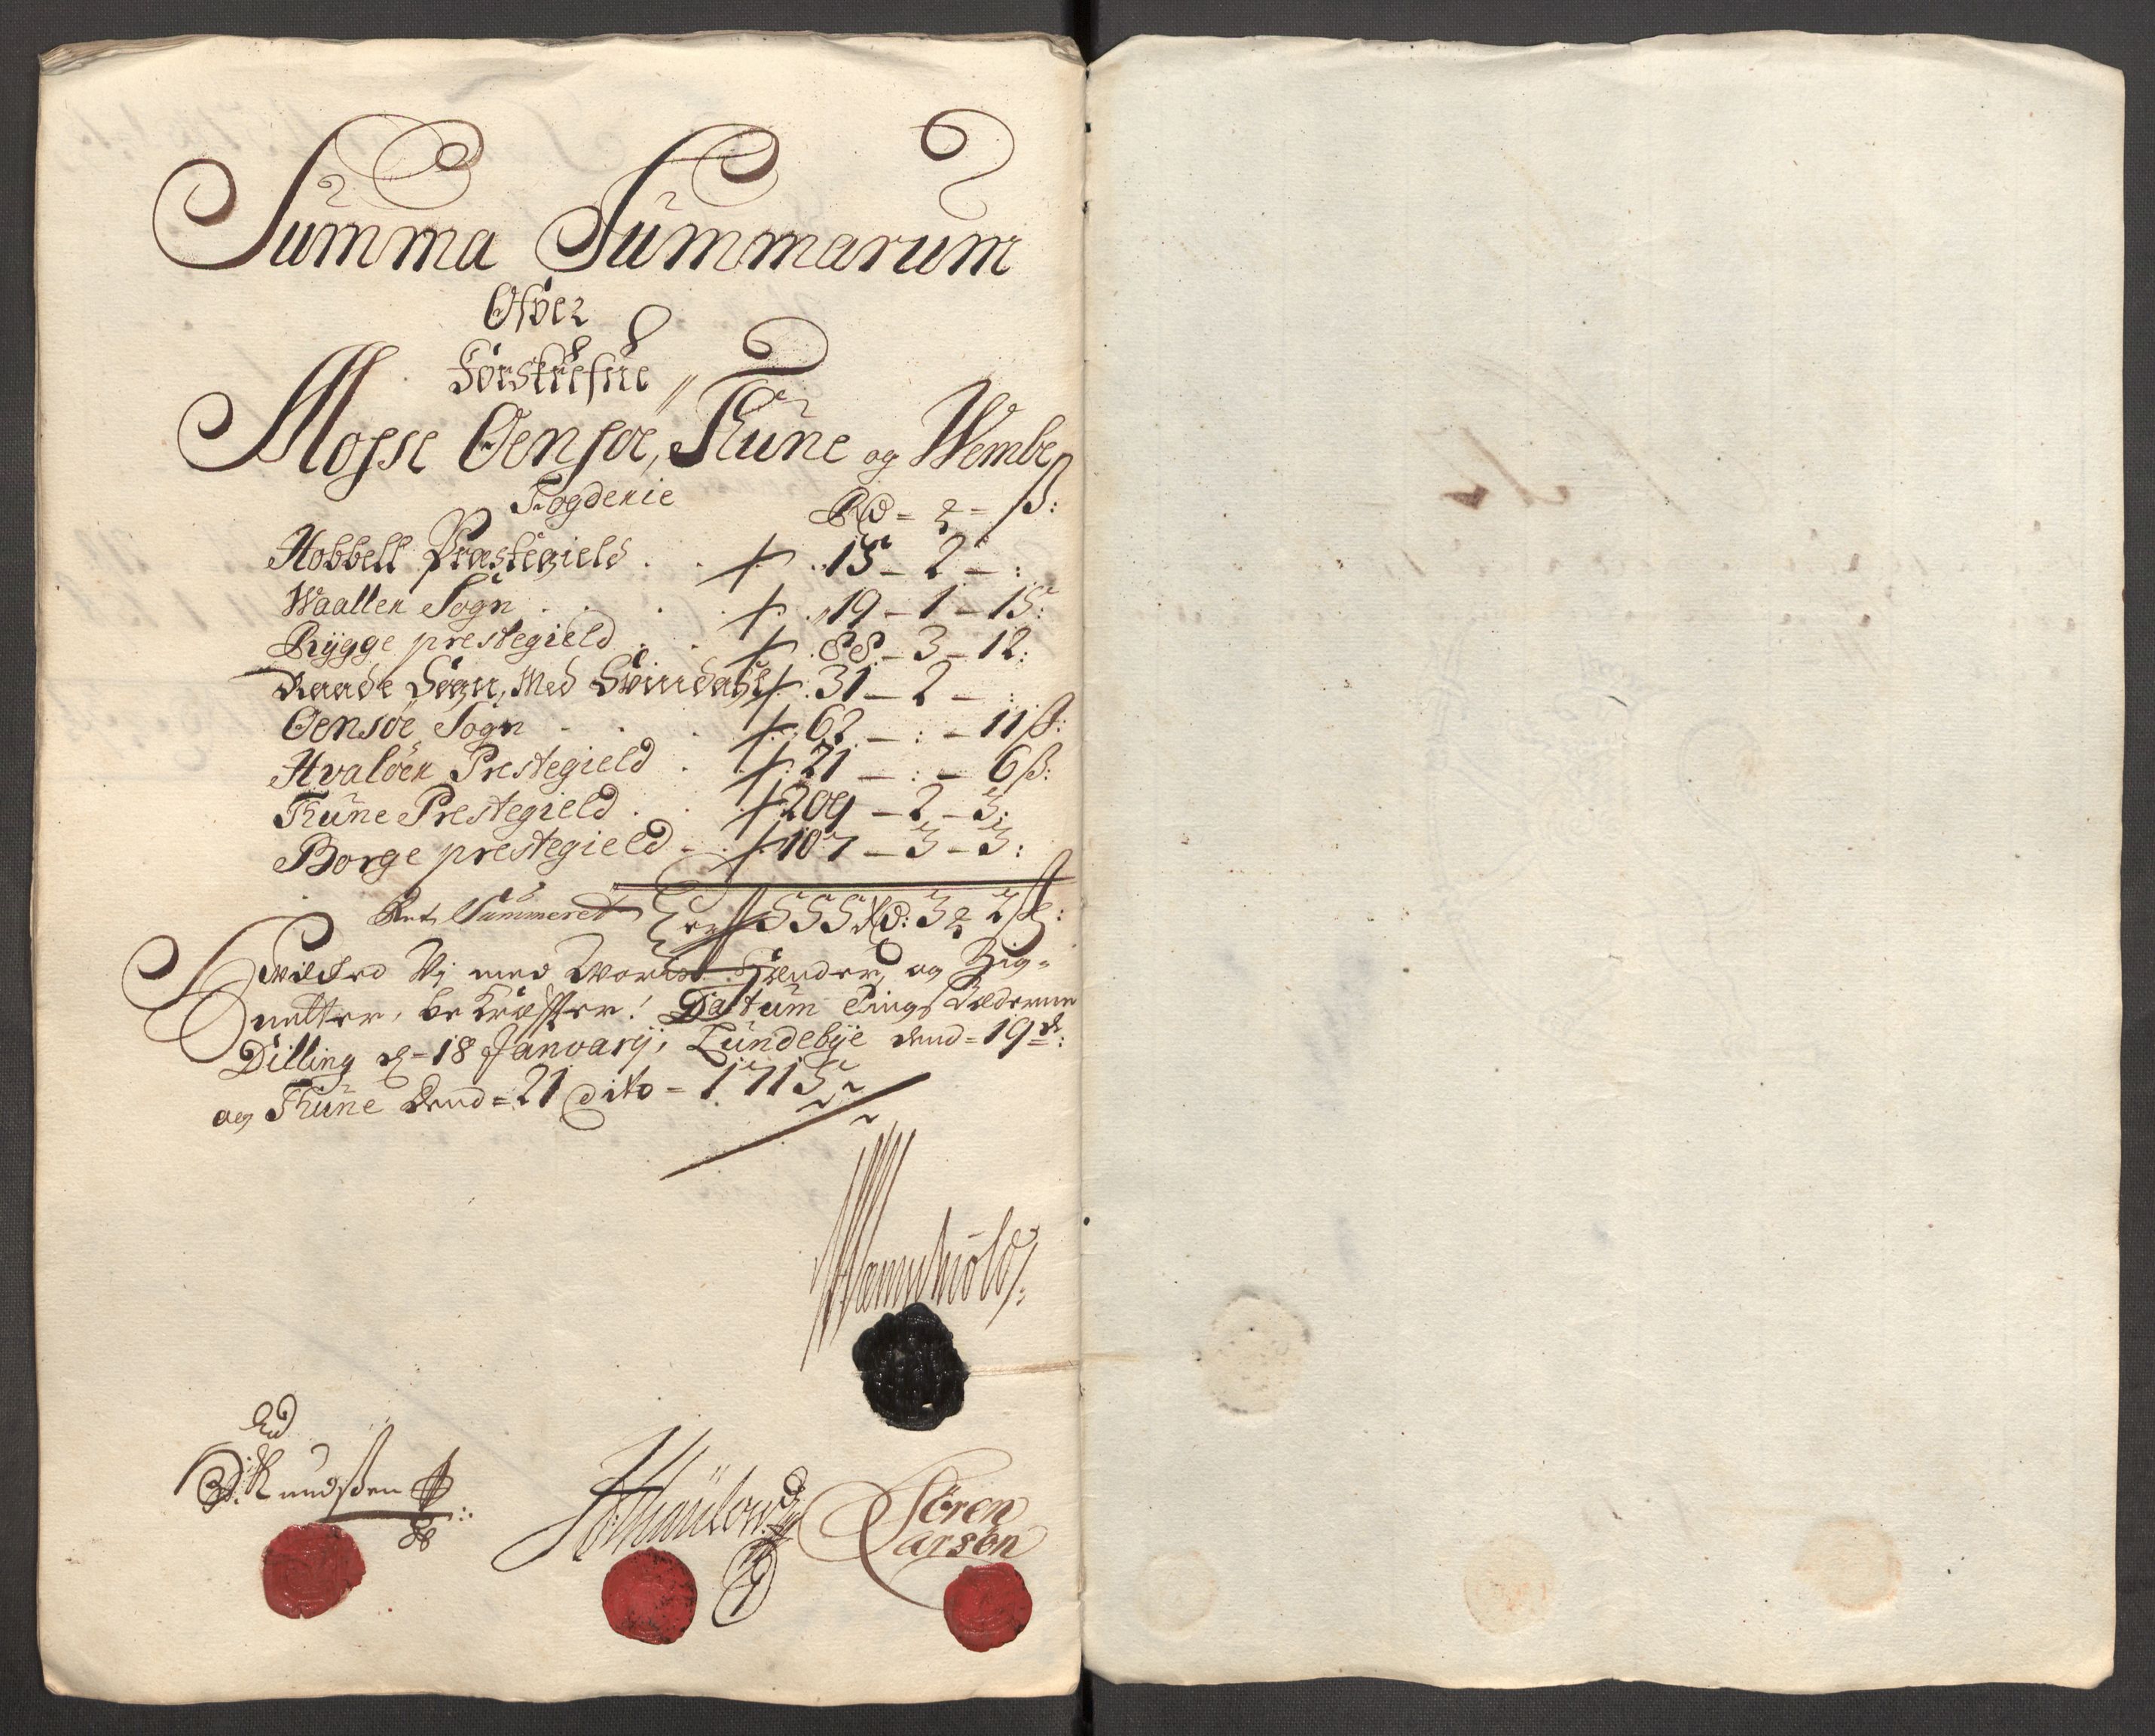 Summa Summarum
Ofver
Forskrefne
Mosse Oensøe, Thune og Wembe
Fogderie
Rd = ₰ = ß:
Hobbell Præstegield . . 15 – 2 – :
Waaller Sogn . . . 19 – 1 – 15:
Rÿgge prestegield . . 88 – 3 – 12:
Raade Sogn, Med Svindahl 31 – 2 – :
Oensøe Sogn . . . 62 – : – 11 ß:
Hvaløer Prestegield . 21 – : – 6 ß:
Thune Prestegield . . 209 – 2 – 3:
Borge prestegield – . 107 – 3 – 3:
Ret Summeret Er 555 Rd: 3 ₰ 2 ß:
Hvilched Vj med Vores Hænder og Zig-
netter, bekræffter! Datum Tingstæderne
Dilling d – 18 Januarÿ, Lundebÿe dend = 19 d:
og Thune dend = 21 dito – 1715
Wernschiöld
Knudssen
Sören
Larsen